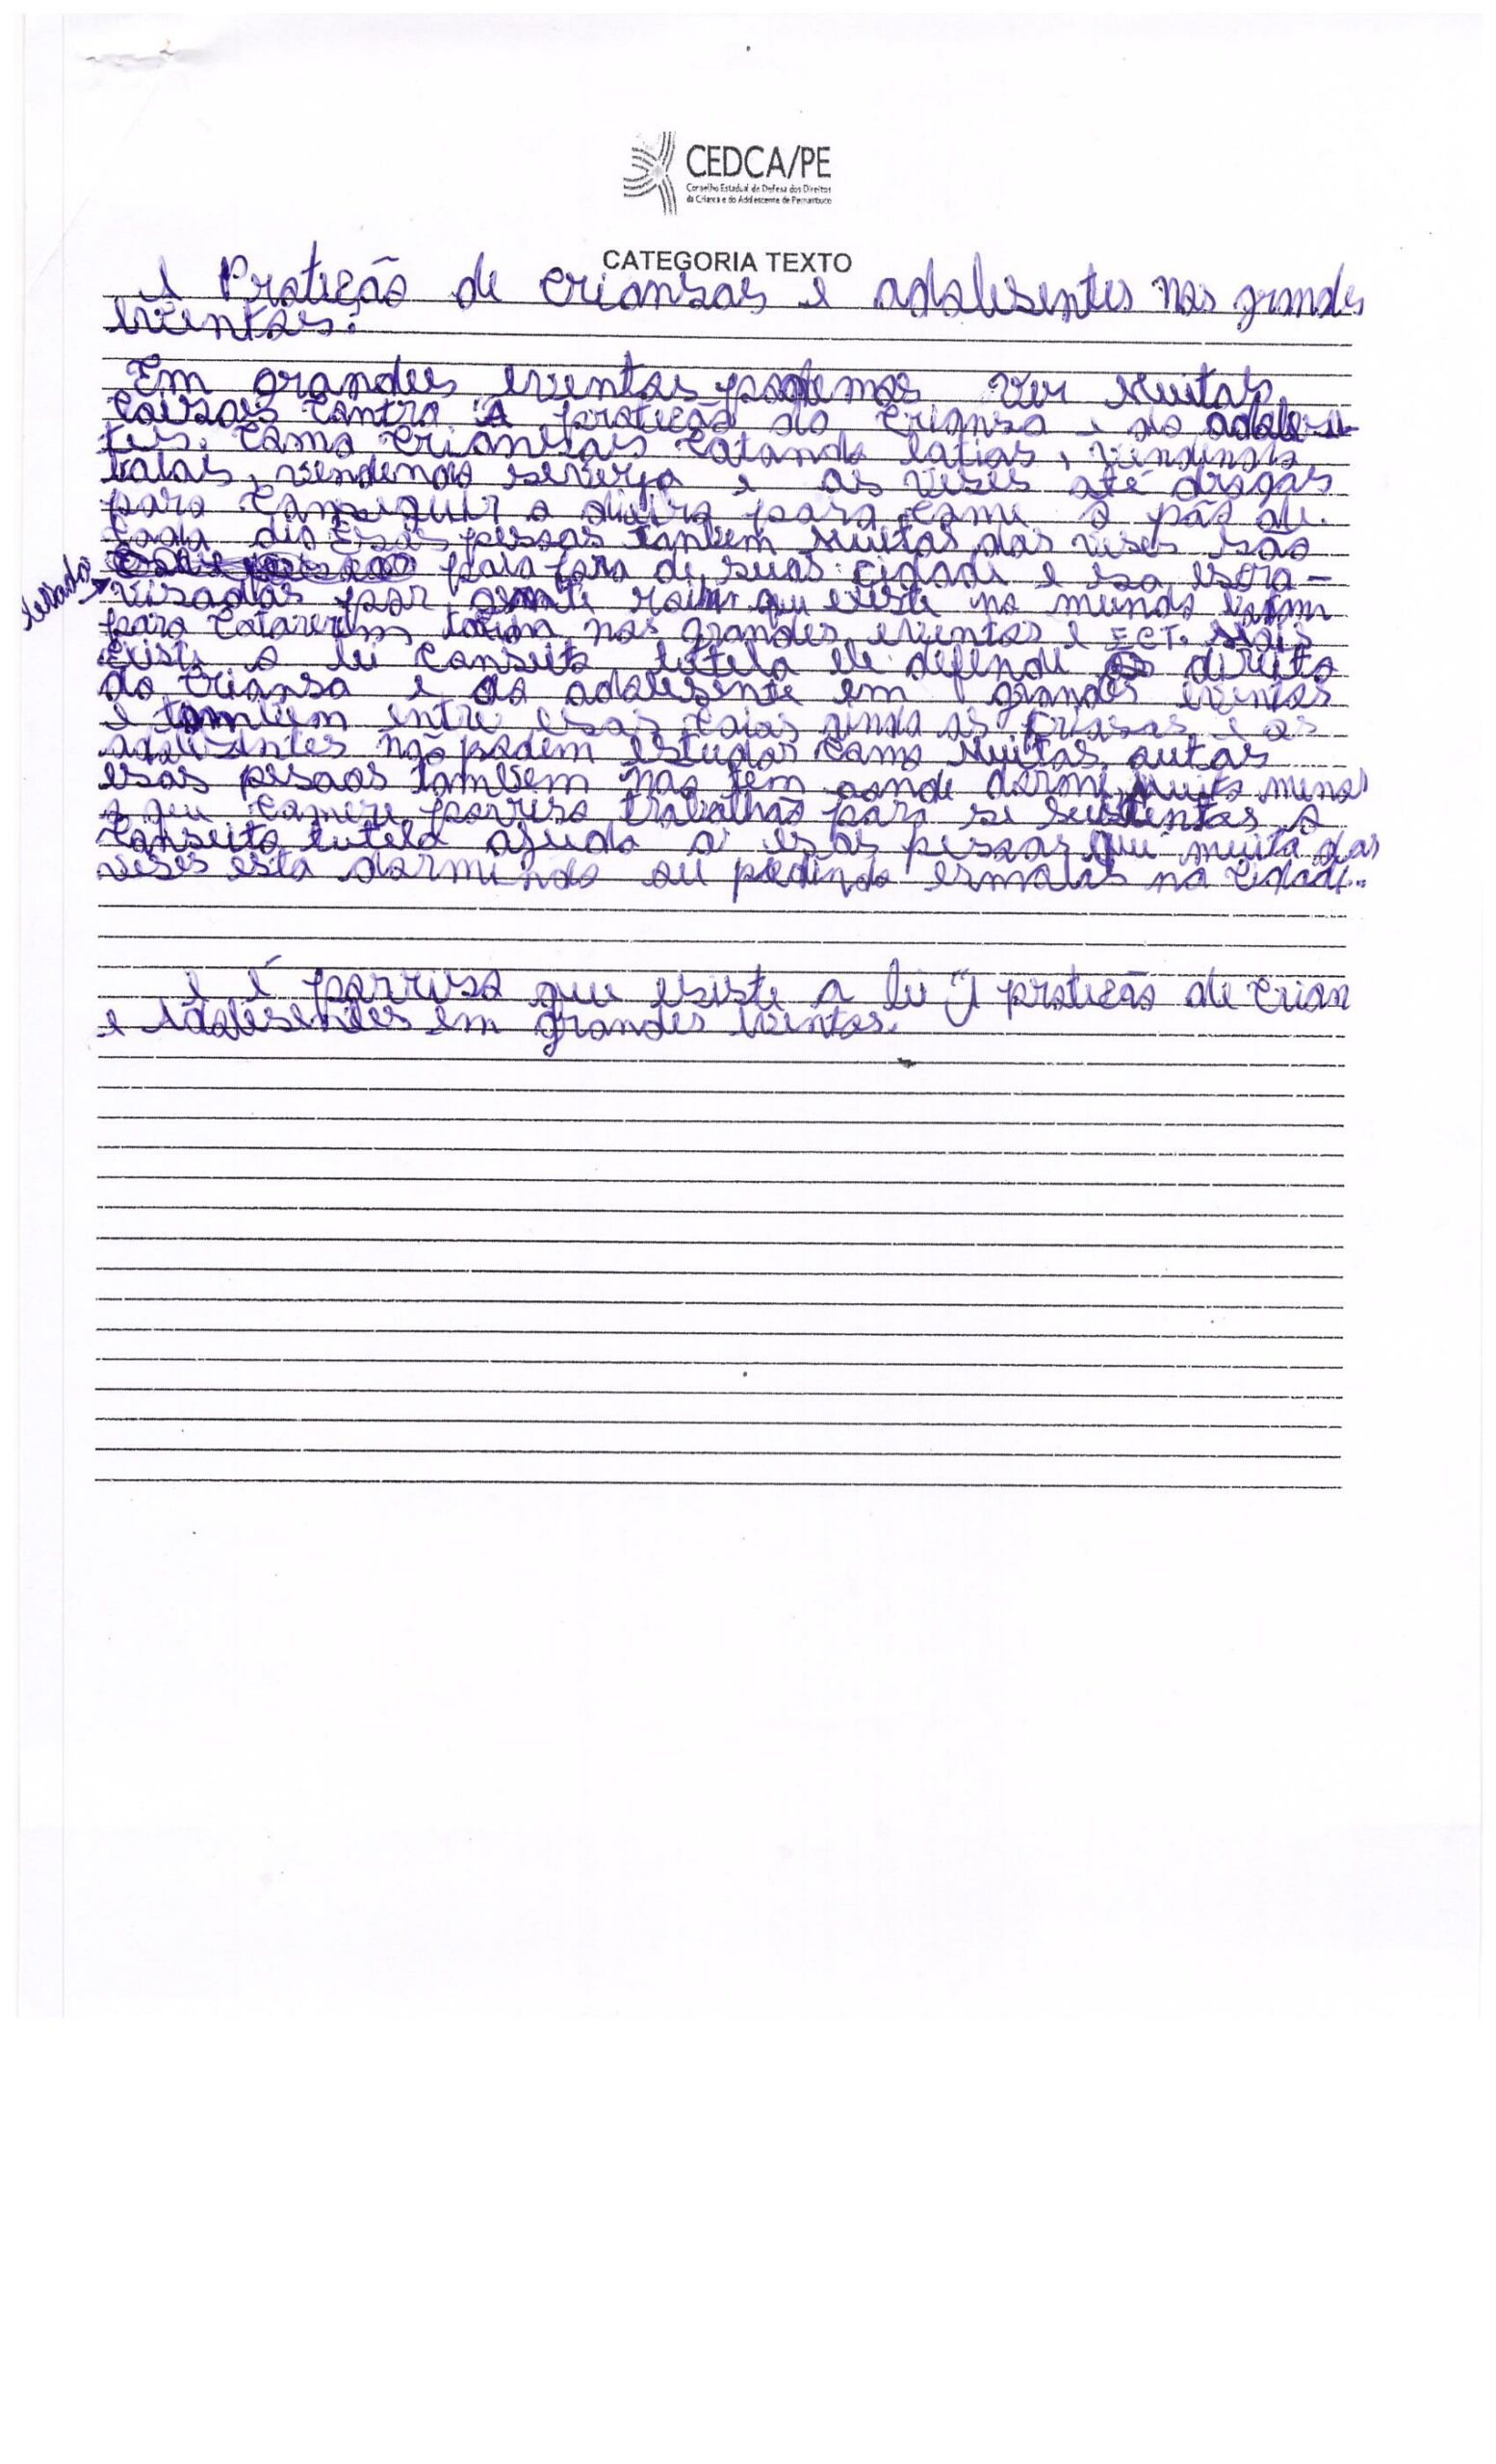 CEDCA/PE
Conselho Estadual de Defesa dos Direitos
da Criança e do Adolescente de Pernambuco
CATEGORIA TEXTO
A Proteção de criansas e adolesentes nos grandes
eventos.
Em grandes eventos podemos ver Muitas
coisas contra "A proteção da criansa e do adolesen
tes. como criansas catando latias, vendendo
balas, vendendo serveja e as veses até drogas
para conseguir o para come o pão de
cada dia Essas pessoas tanbem Muitas das veses são
levados para fora de suas cidade e são escra-
visadas por gente roim que existe no mundo
para catarem latinha nos grandes eventos e ECT. Mais
existe a lei conseito tutela ele defende os direito
da criansa e do adolesente em grandes eventos
e tambem entre esas coias as e os
adolesantes não podem estudar como Muitas outas
esas pesoas tambem nao tem aonde dormi muito menos
o que comere porriso trabalhão para se sustentas o
conseito tutela ajuda a esas pessoas que muita das
veses esta dormindo ou pedindo esmolas na cidade..
e é porriso que esiste a lei "A proteção de crian
e Adolesentes em grandes eventos.